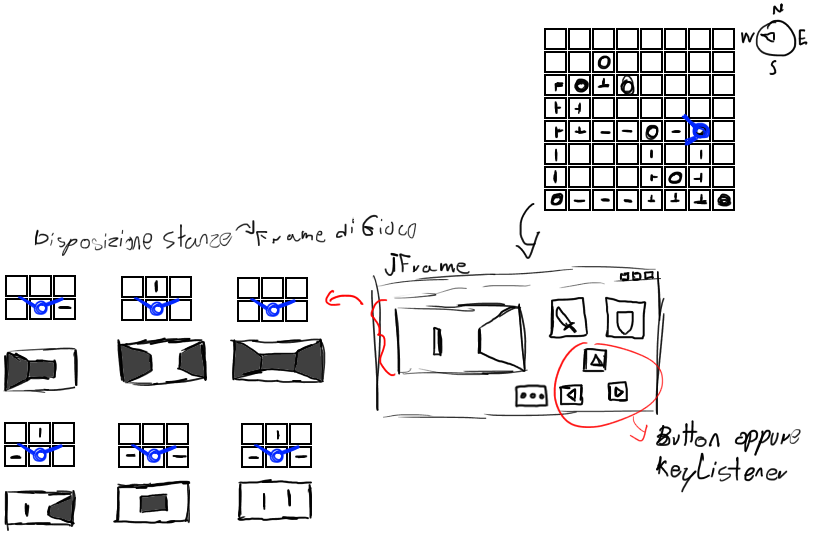 N
W E
S
Disposizione stanze Frame di Gioco
JFrame
Button oppure
KeyListener